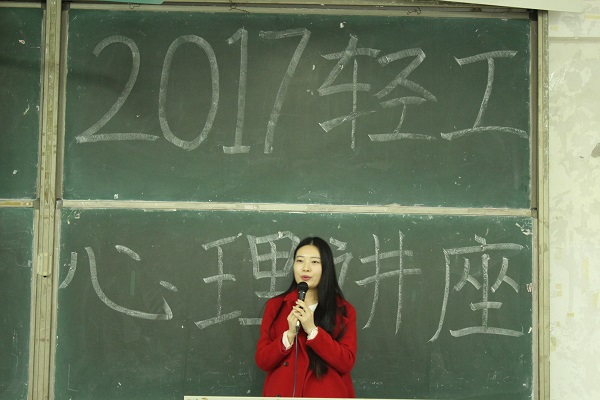 2017轻工
心理讲座